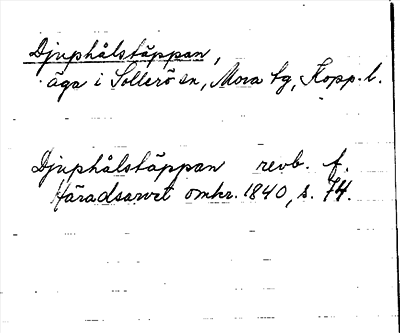 Djuphålstäppan,
äga i Sollerö sn, Mora tg, Kopp. l.
Djuphålstäppan revb. f.
Häradsarvet omkr. 1840, s. 74.